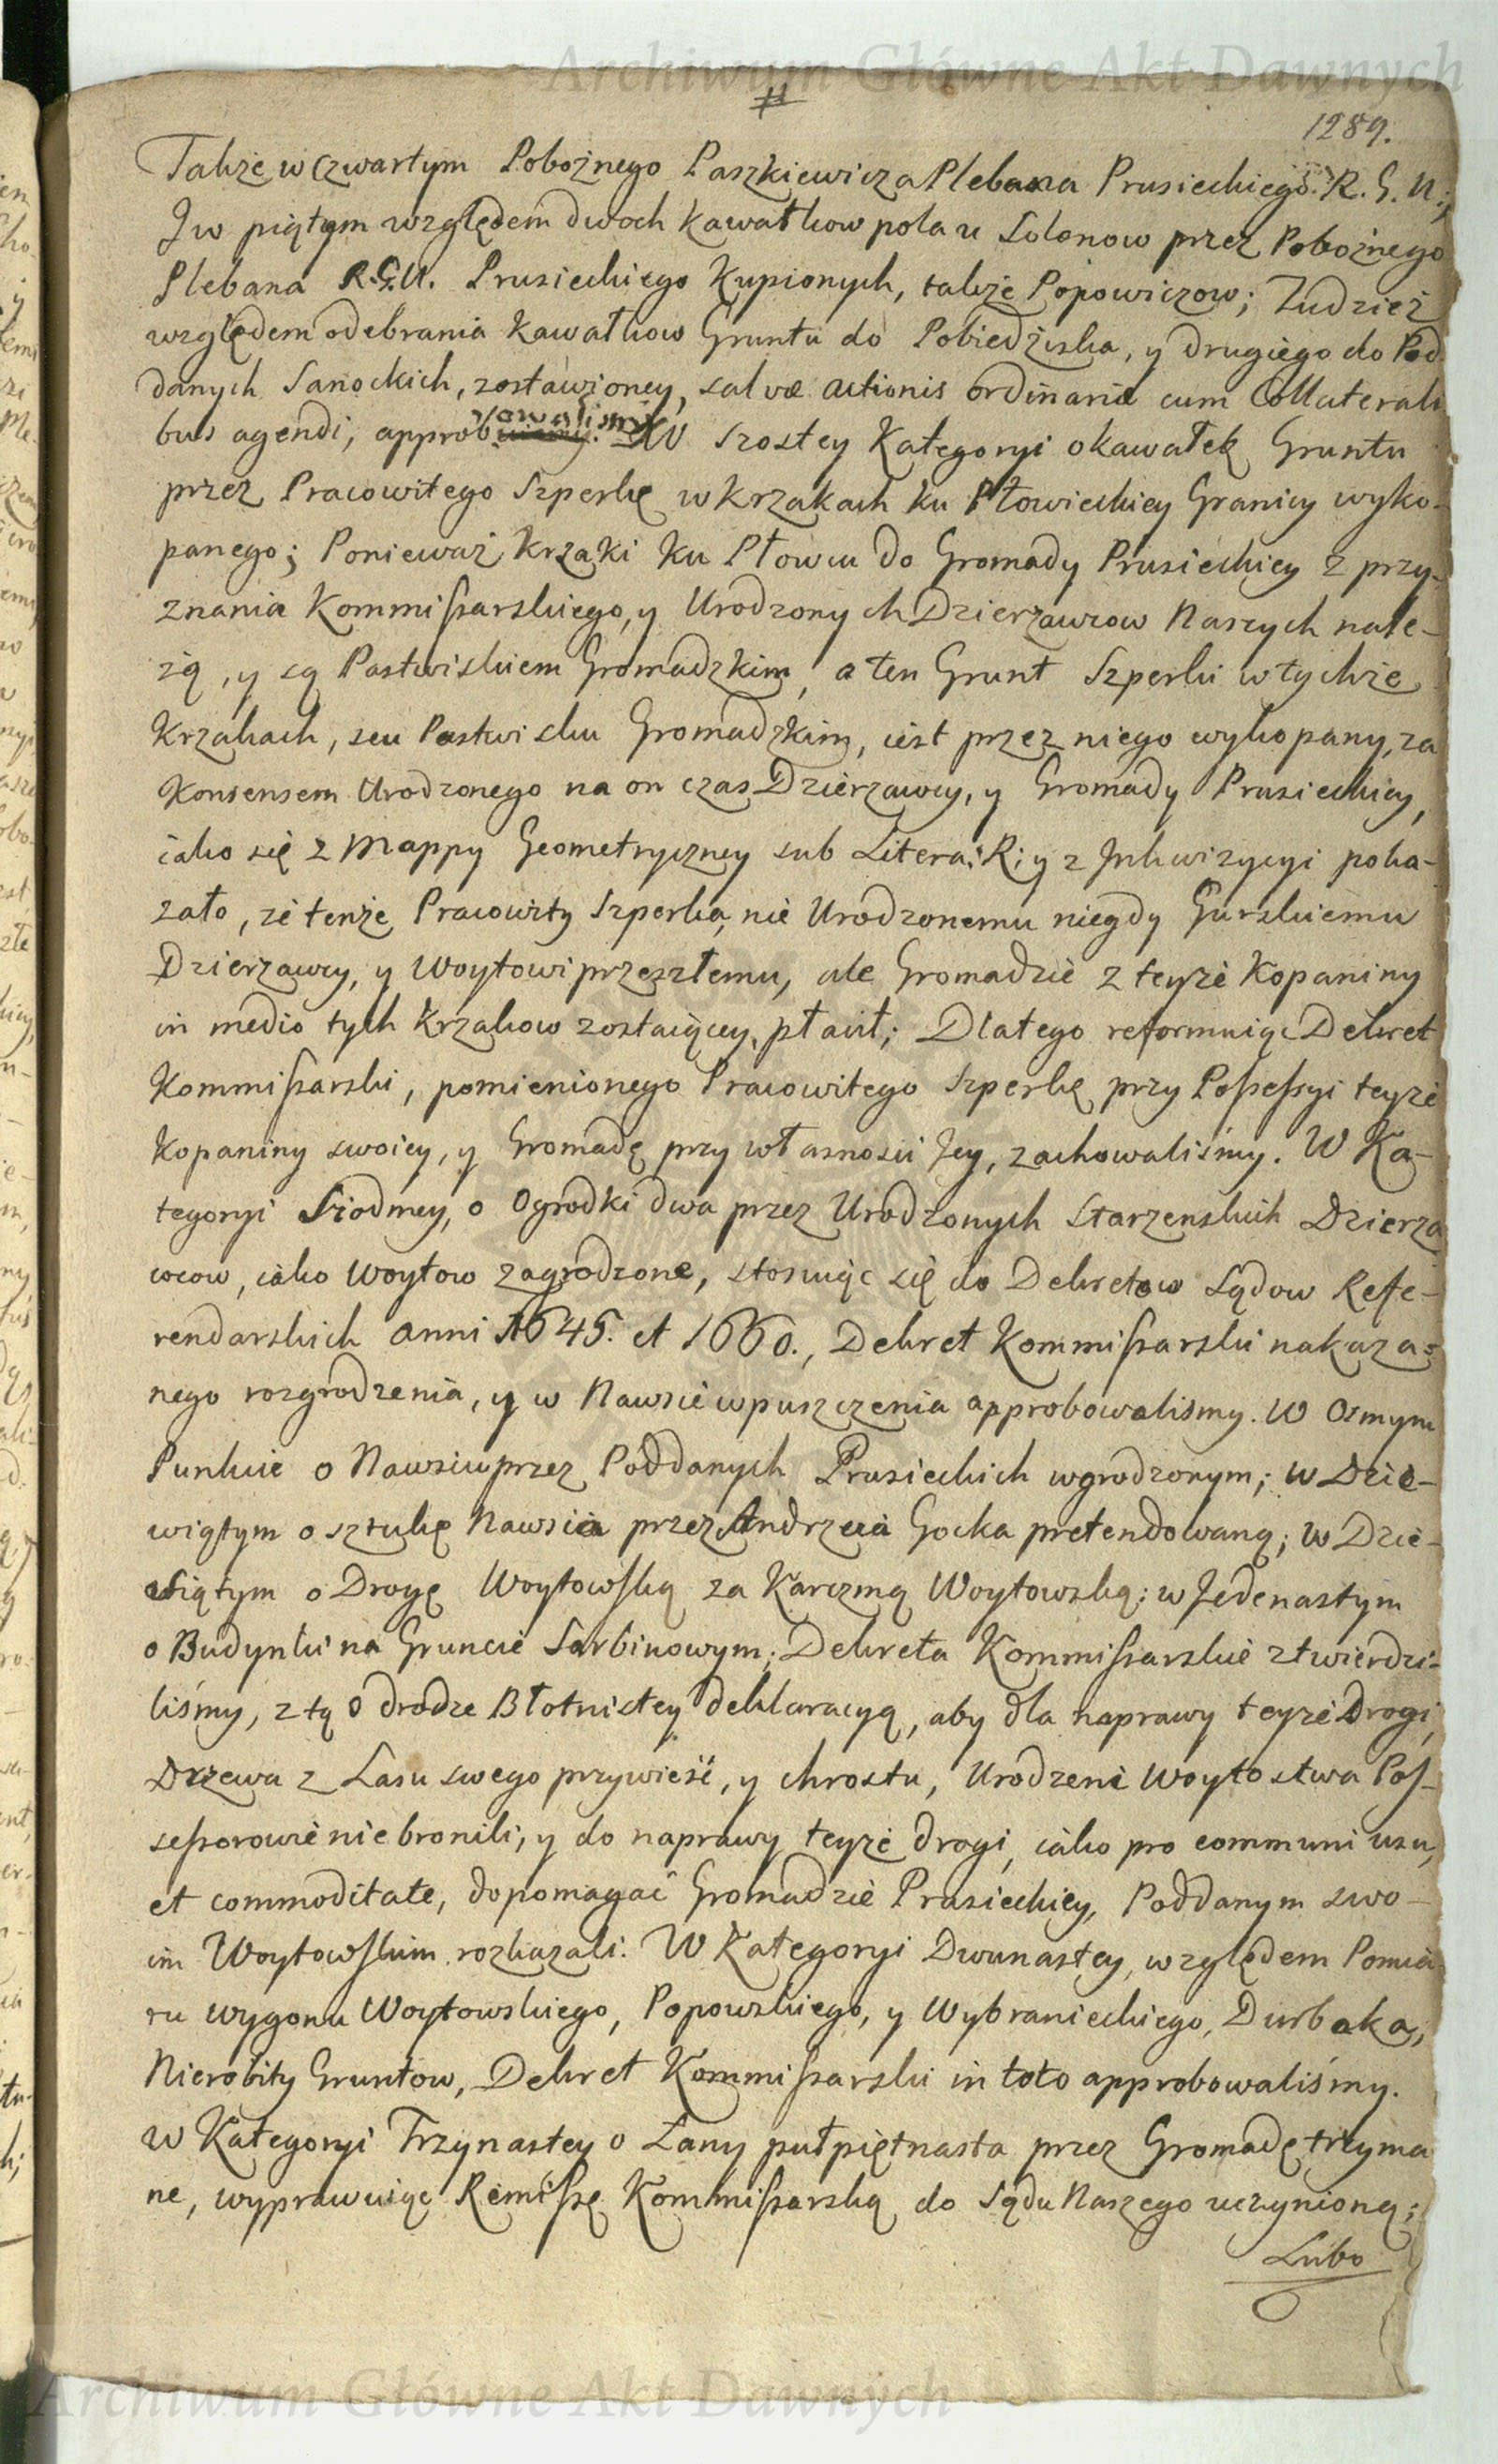 Archiwum Główne Akt Dawnych
#
1289.
Także w Czwartym Pobożnego Paszkiewicza Plebana Prusieckiego R. G. U.;
J w piątym względem dwoch kawałkow pola u Solonow przez Pobożnego
Plebana R.G.U. Prusieckiego Kupionych, także Popowiczow; Tudzież
względem odebrania kawałkow Gruntu do Pobiedziska, y drugiego do Pod
danych Sanockich, zostawioney, salvæ actionis ordinaria cum Collaterali
bus agendi, approbowaliśmy. W Szostey Kategoryi o kawałek Gruntu
przez Pracowitego Szperkę w krzakach ku Płowieckiey Granicy wyko-
panego; Ponieważ krzaki ku Płowcu do Gromady Prusieckiey z przy-
znania Kommissarskiego, y Urodzonych Dzierzawcow Naszych nale-
zą, y są Pastwiskiem Gromadzkim, a ten Grunt Szperki w tychże
Krzakach, seu Pastwisku Gromadzkim, iest przez niego wykopany, za
Konsensem Urodzonego na on czas Dzierzawcy, y Gromady Prusieckiey,
iako się z Mappy Geometryczney sub Litera: R: y z Jnkwizycyi poka-
zało, że tenże Pracowity Szperka, nie Urodzonemu niegdy Gurskiemu
Dzierzawcy, y Woytowi przeszłemu, ale Gromadzie z teyże Kopaniny
in medio tych krzakow zostaiącey, płacił; Dlatego reformuiąc Dekret
Kommissarski, pomienionego Pracowitego Szperkę przy Possessyi teyże
Kopaniny swoiey, y Gromadę przy własnosci Jey, zachowaliśmy. W Ka-
tegoryi Siodmey, o Ogrodki dwa przez Urodzonych Starzenskich Dzierza
wcow, iako Woytow zagrodzone, stosuiąc się do Dekretow Sądow Refe-
rendarskich anni 1645. et 1660., Dekret Kommissarski nakaza-
nego rozgrodzenia, y w Nawsie wpuszczenia approbowaliśmy. W Osmym
Punkcie o Nawsiu przez Poddanych Prusieckich wgrodzonym; w Dzie-
wiątym o sztukę Nawsia przez Andrzeia Gocka pretendowaną; w Dzie-
siątym o Drogę Woytowską za Karczmą Woytowską; w Jedenastym
o Budynki na Gruncie Sarbinowym; Dekreta Kommissarskie ztwierdzi-
liśmy, z tą o drodze Błotnistey deklaracyą, aby dla naprawy teyże Drogi,
Drzewa z Lasu swego przywieść, y chrostu, Urodzeni Woytostwa Pos-
sessorowie nie bronili; y do naprawy teyże drogi, iako pro communi usu,
et commoditate, dopomagać Gromadzie Prusieckiey, Poddanym swo-
im Woytowskim rozkazali. W Kategoryi Dwunastey, względem Pomia
ru wygonu Woytowskiego, Popowskiego, y Wybranieckiego, Durbaka,
Nierobity Gruntow, Dekret Kommissarski in toto approbowaliśmy.
W Kategoryi Trzynastey o Łany pułpiętnasta przez Gromadę trzyma
ne, wyprawuiąc Remissę Kommissarską do Sądu Naszego uczynioną;
Lubo
Archiwum Główne Akt Dawnych